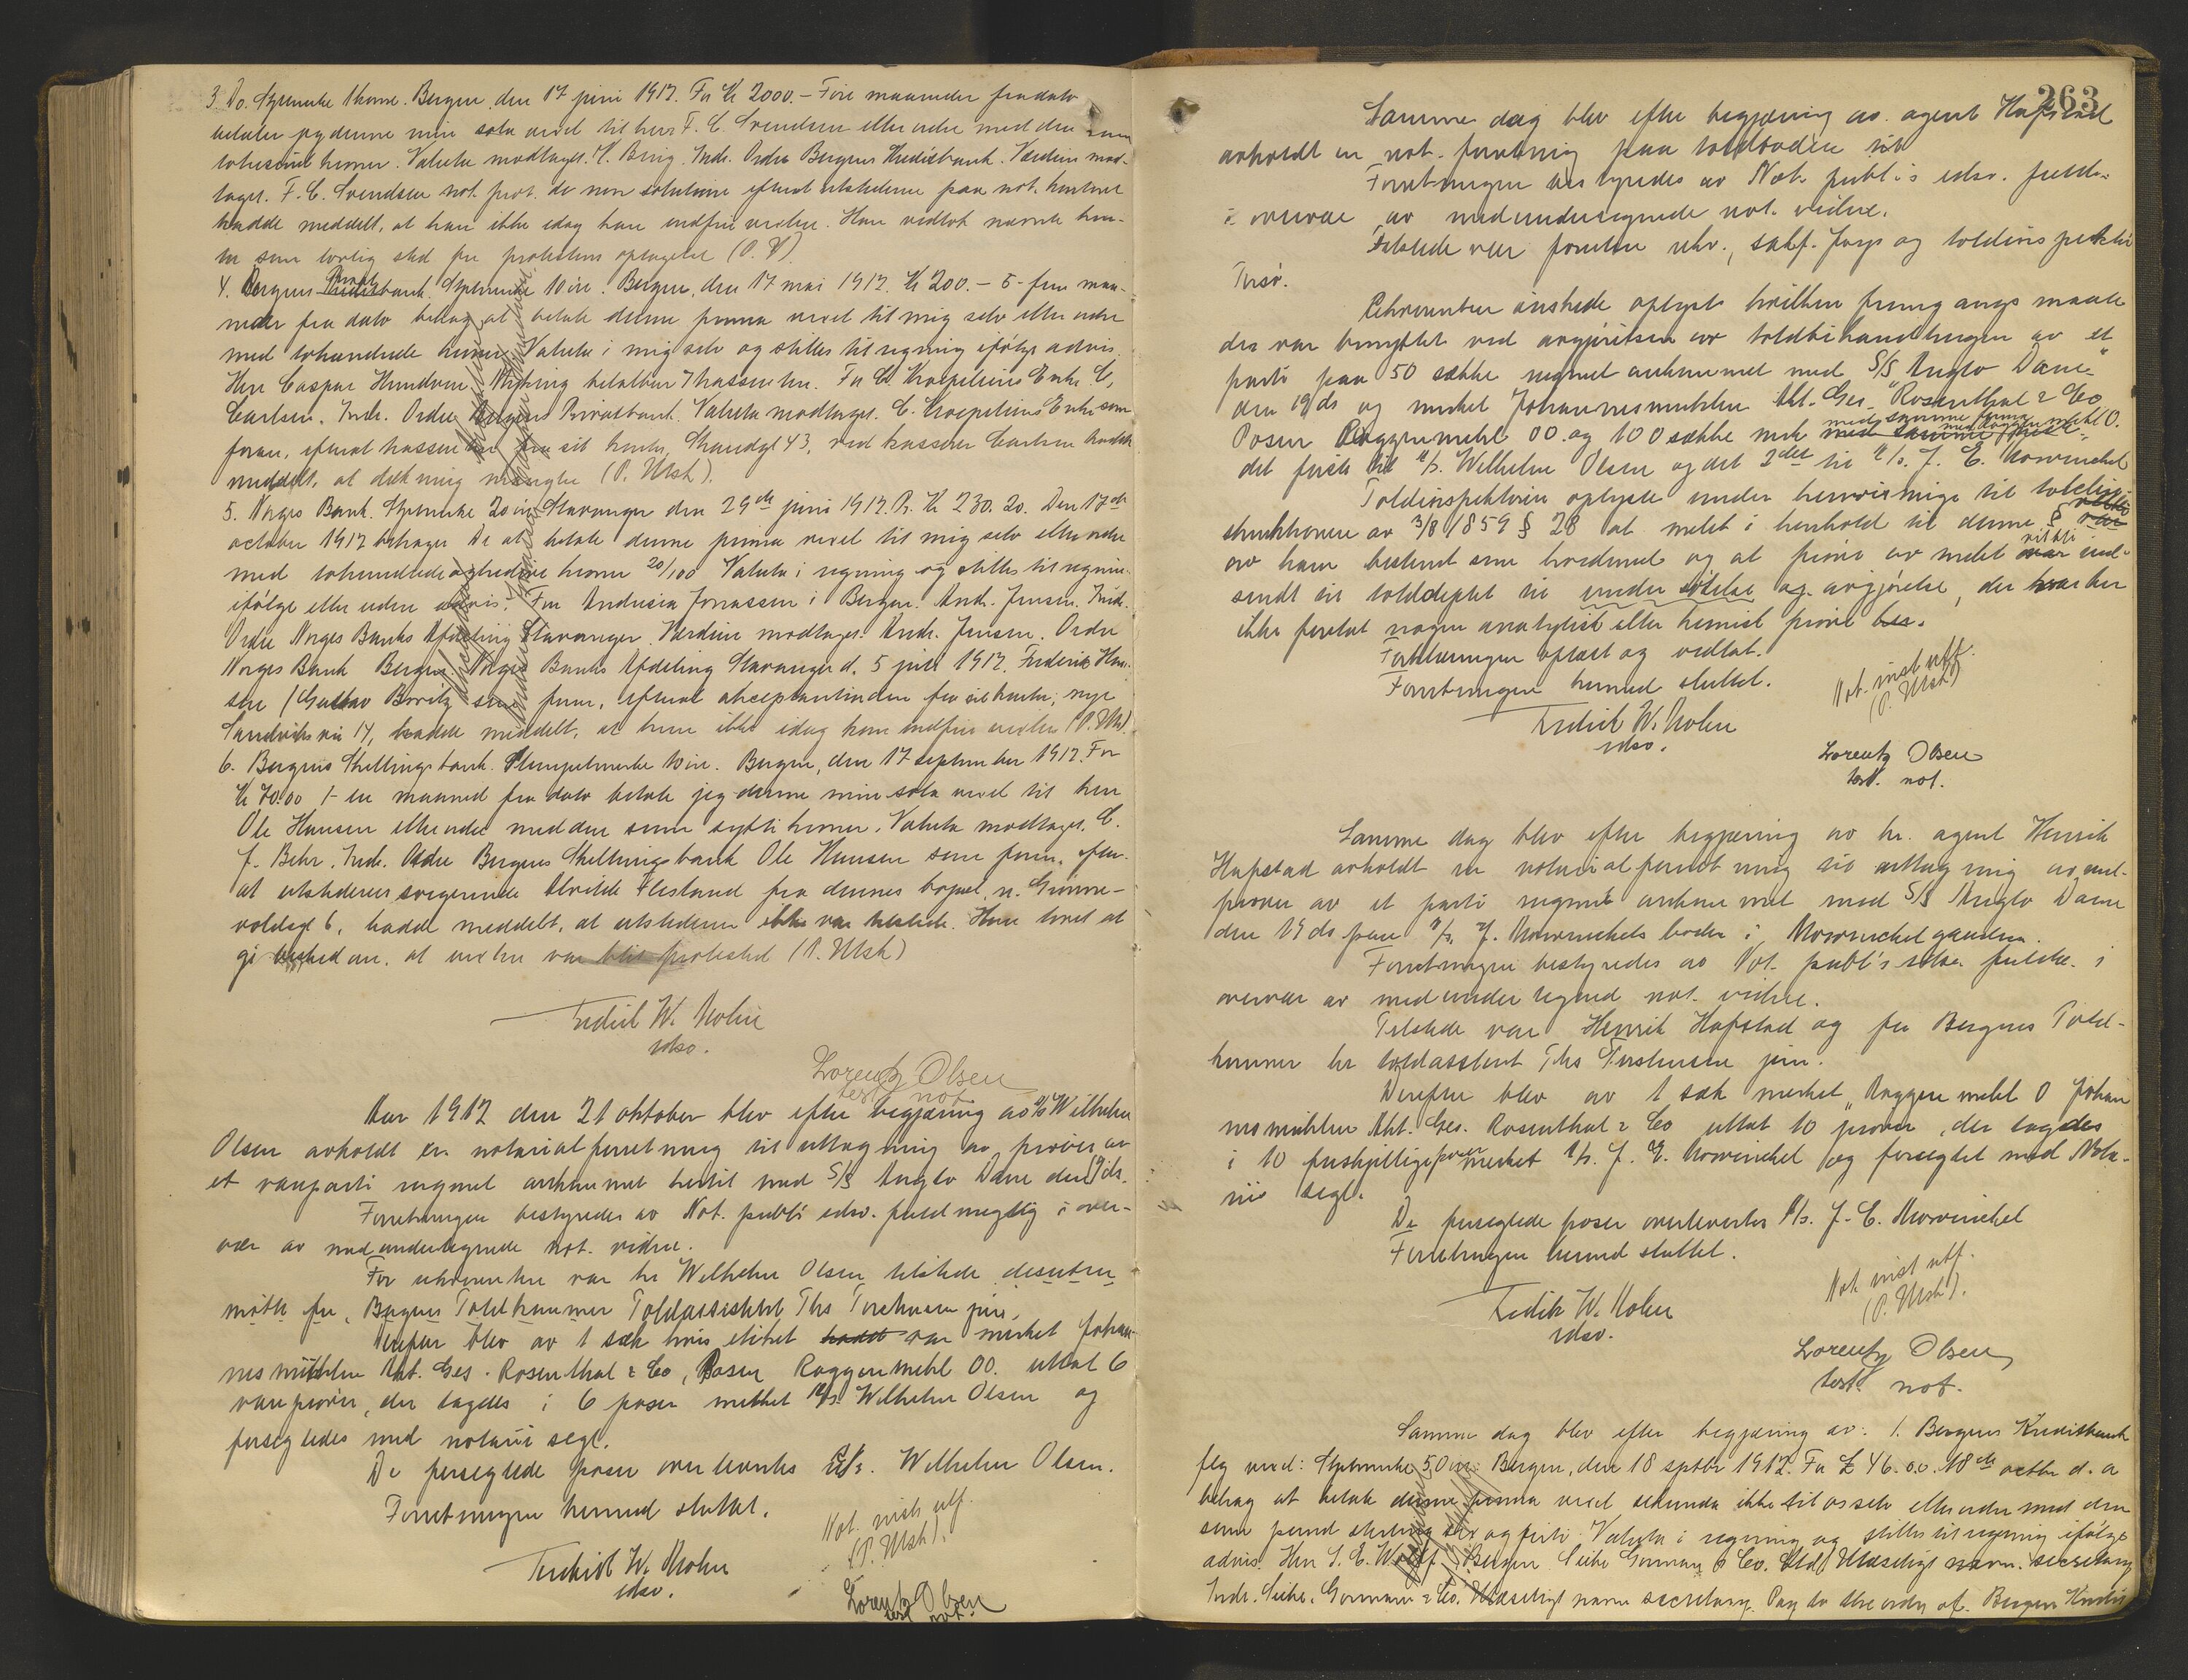 3. Do. Stpmerke 1 krone. Bergen, den 17 juni 1912. For Kr 2000.- Fire maaneder fradato
betaler jeg denne min sola vexel til herr F. C. Svendsen eller ordre med den sum
totusind kroner. Valuta modtaget. Indr. Ordre Bergens Kreditbank. Værdien mod-
taget. F. C. Svendsen not. prot. do non solutione efterat utstederen paa not. kontoret
hadde meddelt, at han ikke idag kan indfri vexlen. Han vedtok
som lovlig sted for protestens optagelse (P. U)
4. Bergens Privatbank. Stpmerke 10 øre. Bergen, den 17 mai 1912. Kr 200.- 5- fem maa-
neder fra dato behag at betale denne prima vexel til mig selv eller ordre
med tohundrede kroner Valuta i mig selv og stilles til regning ifølge advis.
Herr Caspar Hundven For C. Kroepeliens Enke C.
Carlsen. Indr. Ordre Bergens Privatbank. Valuta modtaget. C. Kroepeliens Enke som
foran, efterat fra sit kontor, Strandgt 43, ved kasserer Carlsen hadde
meddelt, at dækning mangler (P. Utsk).
5. Norges Bank. Stpmerke 20 øre Stavanger den 29de juni 1912. Pr. Kr 230.20. Den 17de
october 1912 behager De at betale denne prima vexel til mig selv eller ordre
med tohundrede og tredive kroner 20/100 Valuta i regning og stilles til regning
ifølge eller uden advis. Fru Andrea Jonassen i Bergen. Andr. Jensen. Indr.
Ordre Norges Banks Afdeling Stavanger. Værdien modtaget. Andr. Jensen. Ordre
Norges Bank Bergen. Norges Banks Afdeling Stavanger d. 5 juli 1912. Frederik Han-
sen / Gustav som foran, efterat akseptantinden fra sit kontor, nye
Sandviksvei 14, hadde meddelt, at hun ikke idag kan indfri vexlen (P. Utsk).
6. Bergens Skillingsbank. Stempelmerke 10 øre. Bergen, den 17 september 1912. For
Kr 70.00 1- en maaned fra dato betaler jeg denne min sola vexel til herr
Ole Hansen eller ordre med den sum sytti kroner. Valuta modtaget. C.
J. Behr. Indr. Ordre Bergens Skillingsbank Ole Hansen som foran, efter-
at utstederens svigerinde Alvilde Flesland fra dennes bopæl, n. Gimre-
voldsgt 6, hadde meddelt, at utstederen ikke var tilstede. Hun lovet at
gi besked om, at vexlen var blit protestert (P. Utsk)
Fredrik W. Mohn
edsv.
Lorentz Olsen
test. not.
Aar 1912 den 21 oktober blev efter begjæring av A/S Wilhelm
Olsen avholdt en notarialforretning til uttagning av prøver av
et vareparti rugmel ankommet hertil med S/S Anglo Dane den 19 ds.
Forretningen bestyredes av Not. publ's edsv. fuldmegtig i over-
vær av medundertegnede not. vidne.
For rekvirenten var hr Wilhelm Olsen tilstede desuten
møtte fra Bergens Toldkammer Toldassistent Ths Torstensen jun.
Derefter blev av 1 sæk hvis etiket hadde var merket Johan-
nesmühlen Akt. Ges. Rosenthal & Co, Posen Roggenmehl 00. uttat 6
vareprøver, der lagdes i 6 poser merket A/S Wilhelm Olsen og
forsegledes med notarii segl.
De forseglede poser overleveredes A/S. Wilhelm Olsen.
Forretningen hermed sluttet.
Not. inst utf.
(P. Utsk).
Fredrik W. Mohn
edsv.
Lorentz Olsen
test. not.
263
Samme dag blev efter begjæring av agent Hafstad
avholdt en not. forretning paa toldboden
Forretningen bestyredes av Not. publ's edsv. fuldm.
i overvær av medundertegnede not. vidne.
Tilstede var foruten rekv., sakf. og toldinspektør
Rekvirenten ønskede oplyst hvilken fremgangsmaate
der var benyttet ved avgjørelsen av toldbehandlingen av et
parti paa 50 sække rugmel ankommet med S/S "Anglo Dane"
den 19 ds og merket Johannesmühlen Akt. Ges. Rosenthal & Co
Posen Roggenmehl 00. og 100 sække merk med samme firma med Roggenmehl 0.
det første til A/S. Wilhelm Olsen og det 2det til A/S. J. E. Mowinckel
Toldinspektøren oplyste under henvisning til toldin-
struktionen av 3/8 1859 § 28 at melet i henhold til denne §
av ham bestemt som hvedemel og at prøve av melet var ind-
sendt til tolddeptet til undersøkelse og avgjørelse, der
ikke foretat nogen analytisk eller kemisk prøve her.
Forklaringen oplæst og vedtat.
Forretningen hermed sluttet.
Not. inst utf.
(P. Utsk)
Fredrik W. Mohn
edsv.
Lorentz Olsen
test. not.
Samme dag blev efter begjæring av hr. agent Henrik
Hafstad avholdt en notarialforretning til uttagning av mel-
prøver av et parti rugmel ankommet med S/S Anglo Dane
den 19 ds paa A/S. J. Mowinckels boder i Mowinckelgaarden.
Forretningen bestyredes av Not. publ's edsv. fuldm. i
overvær av medundertegnede not. vidne.
Tilstede var Henrik Hafstad og fra Bergens Told-
kammer hr toldassistent Ths Torstensen jun.
Derefter blev av 1 sæk merket "Roggenmehl 0 Johan
nesmühlen Akt. Ges. Rosenthal & Co uttat 10 prøver, der lagdes
i 10 forskjellige poser merket A/S. J. E. Mowinckel og forseglet med Nota-
rii segl.
De forseglede poser overlevertes A/S. J. E. Mowinckel
Forretningen hermed sluttet.
Not inst utf.
(P. Utsk).
Fredrik W. Mohn
edsv.
Lorentz Olsen
test. not.
Samme dag blev efter begjæring av: 1. Bergens Kreditbank
flg vexel: Stpmerke 50 øre Bergen, den 18 septbr 1912. For £ 46.0.0. 18de octbr d. a
behag at betale denne prima vexel secunda ikke til os selv eller ordre med den
sum pund sterling sex og firti Valuta i regning og stilles til regning ifølge
advis. Herr S. E. Wolff Bergen Siebe Gorman & Co. Ltd. Ulæseligt navn. secretary
Indr. Siebe, Gorman & Co. Ulæseligt navn secretary. Pay to the order of. Bergens Kredit